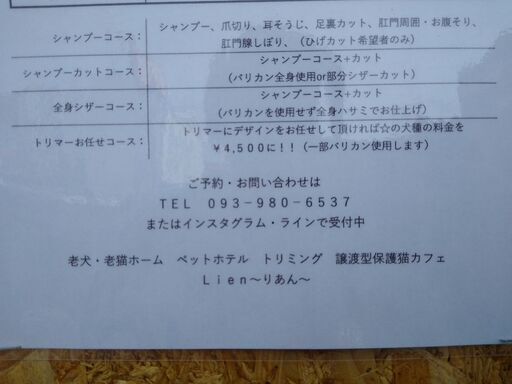 シャンプーコース： シャンプー、爪切り、耳そうじ、足裏カット、肛門周囲・お腹そり、
肛門腺しぼり、（ひげカット希望者のみ）
シャンプーカットコース： シャンプーコース+カット
（バリカン全身使用or部分シザーカット）
全身シザーコース： シャンプーコース+カット
（バリカンを使用せず全身ハサミでお仕上げ）
トリマーお任せコース： トリマーにデザインをお任せして頂ければ☆の犬種の料金を
￥4,500に!!（一部バリカン使用します）
ご予約・お問い合わせは
TEL 093-980-6537
またはインスタグラム・ラインで受付中
老犬・老猫ホーム ペットホテル トリミング 譲渡型保護猫カフェ
Lien～りあん～